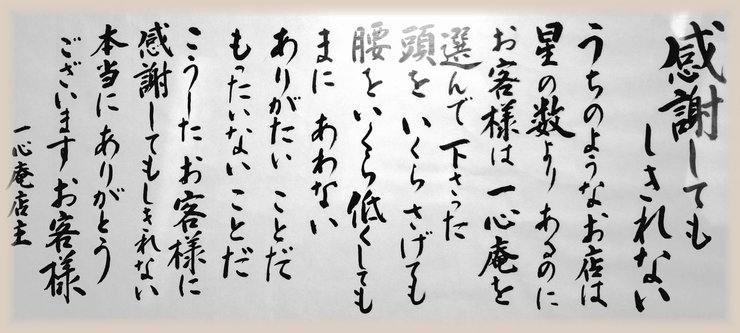 感謝しても
しきれない
うちのようなお店は
星の数より あるのに
お客様は 一心庵を
選んで 下さった
頭を いくら さげても
腰を いくら 低くしても
まに あわない
ありがたい ことだ
もったいない ことだ
こうした お客様に
感謝してもしきれない
本当に ありがとう
ございます お客様
一心庵店主